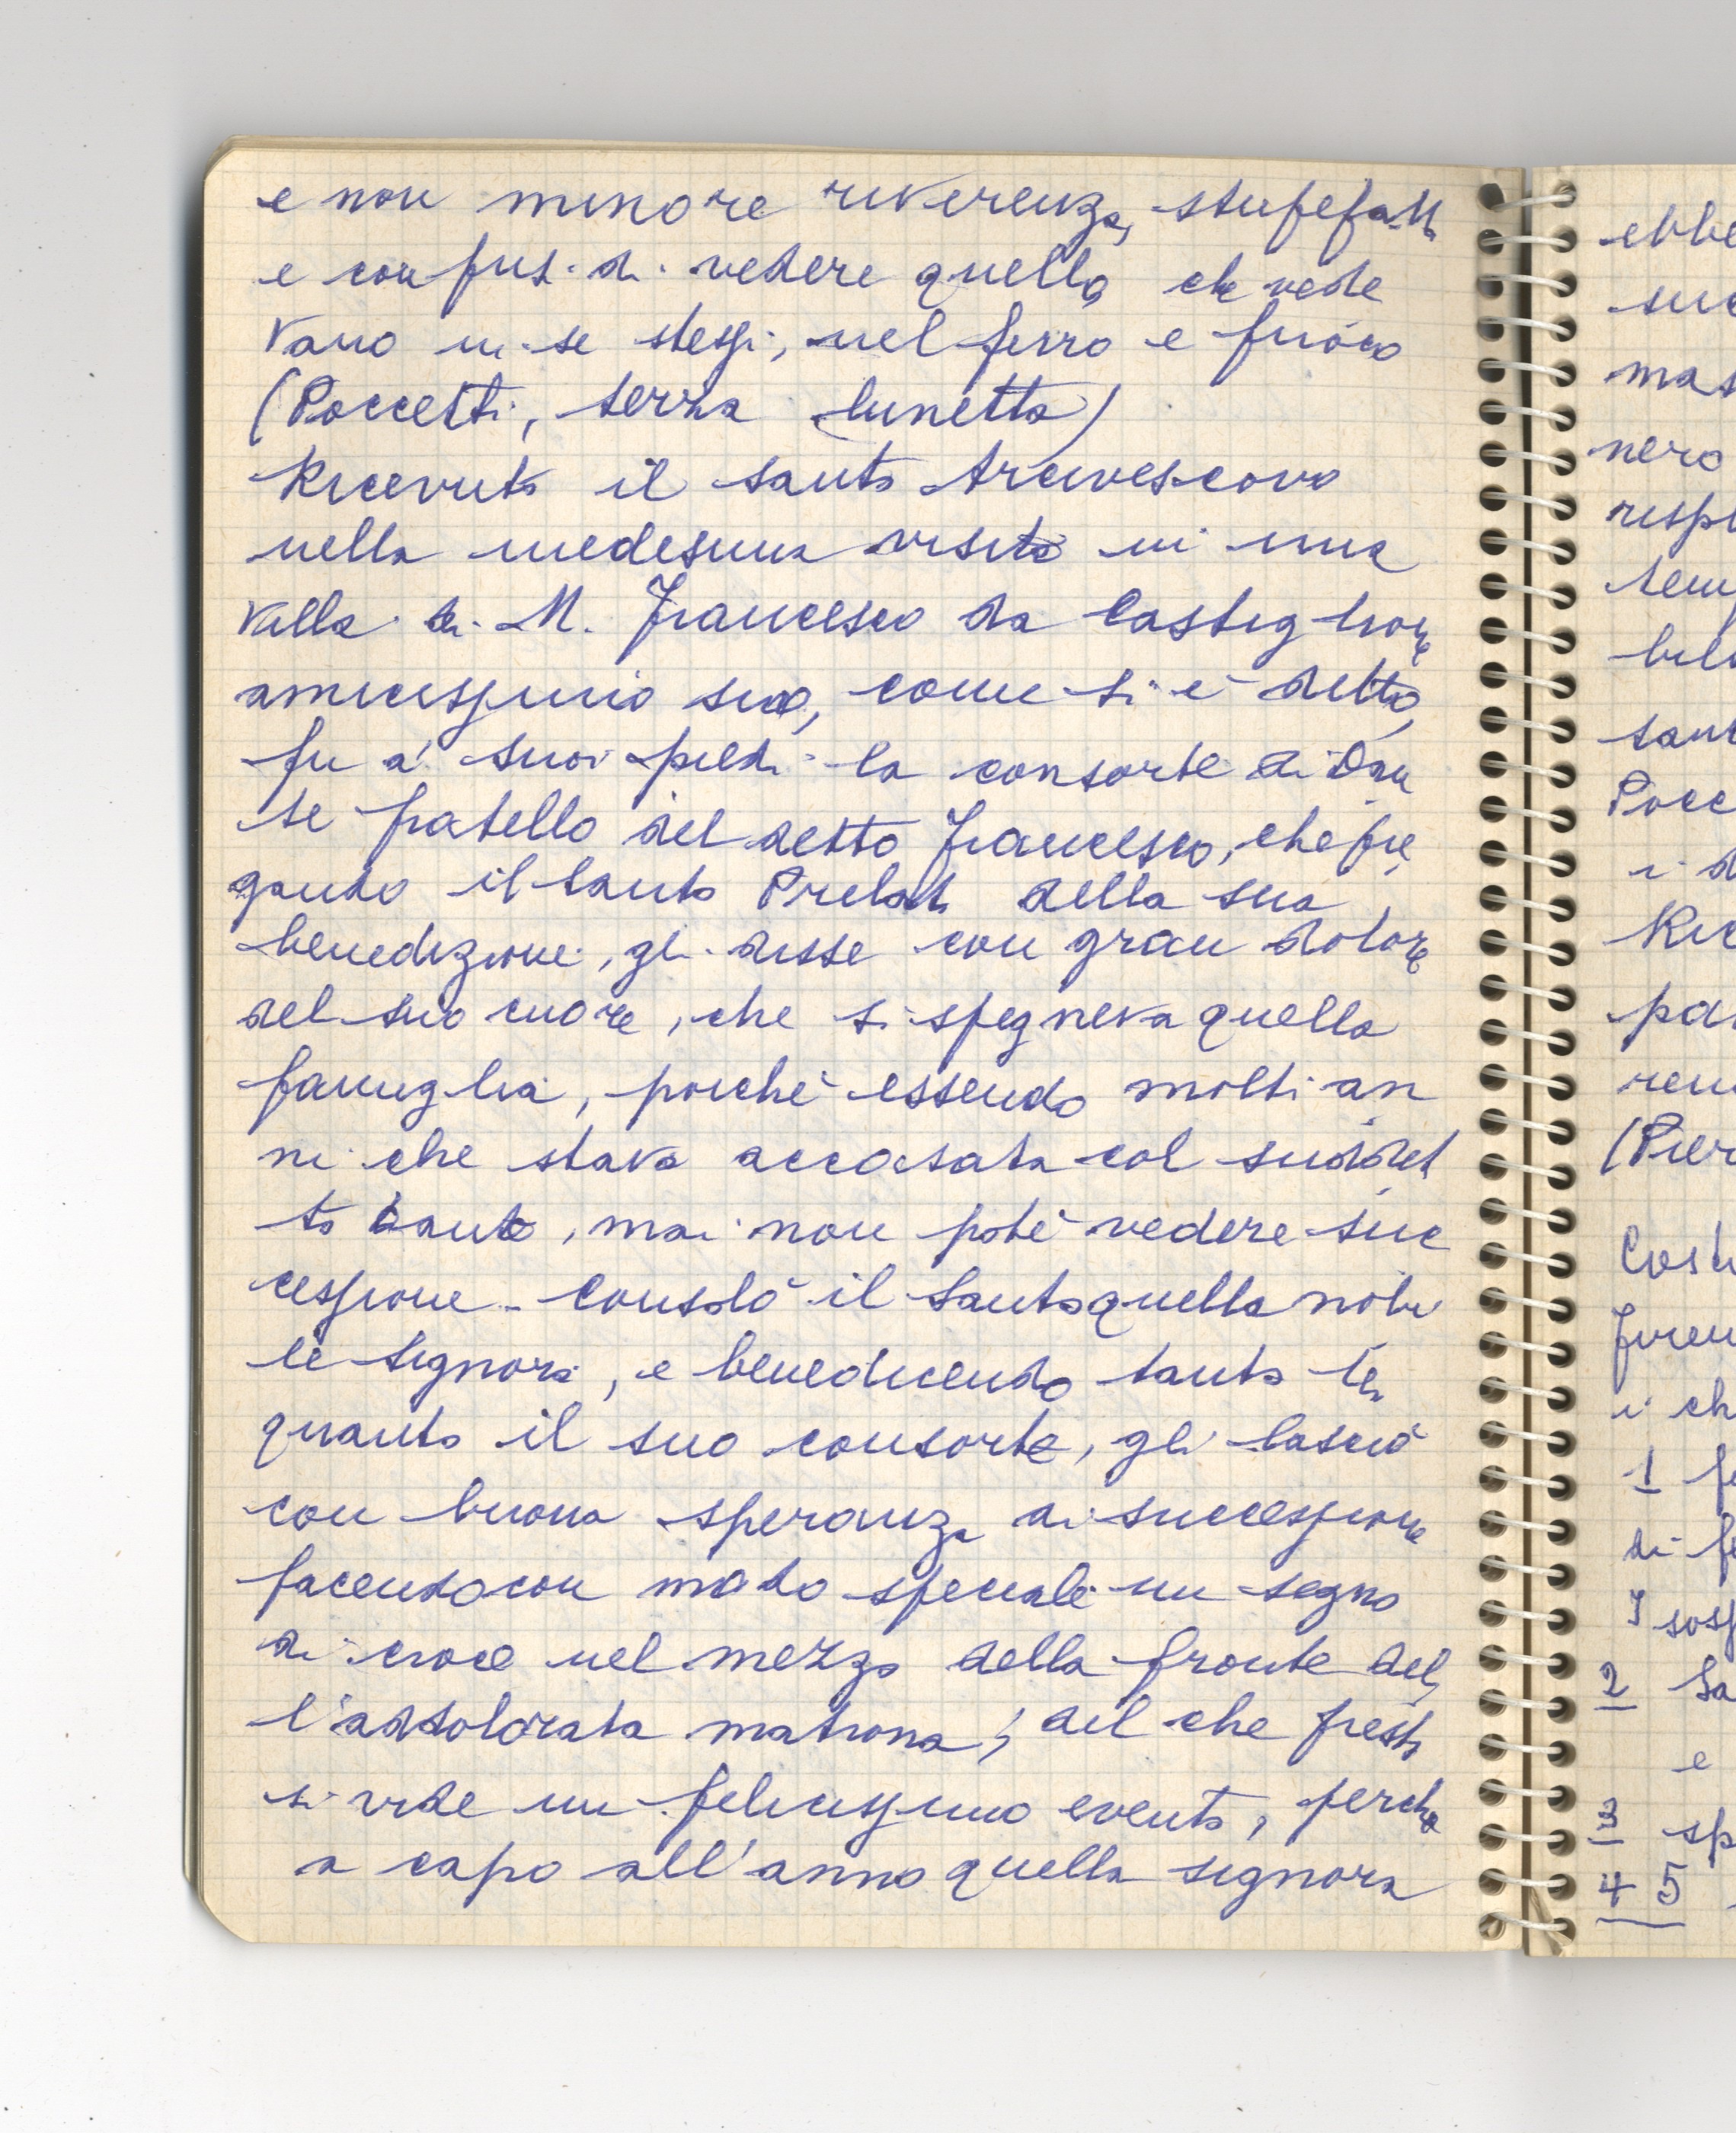 e non minore riverenza, stupefatti
e confusi di vedere quello, che vede
vano in se stessi, nel ferro e fuoco
(Poccetti, terza lunetta)
Ricevuto il santo Arcivescovo
nella medesima visita in una
villa di M. Francesco da Castiglione
amicissimo suo, come si è detto,
fu a' suoi piedi la consorte di Dan
te fratello del detto Francesco, che pre
gando il santo Prelato della sua
benedizione, gli disse con gran dolore
del suo cuore, che si spegneva quella
famiglia, poiché essendo molti an
ni che stava accasata col suddet
to Dante, mai non poté vedere suc
cessione. Consolò il Santo quella nobi
le signora, e benedicendo tanto lei
quanto il suo consorte, gli lasciò
con buona speranza di successione
facendo con modo speciale un segno
di croce nel mezzo della fronte del
l'addolorata matrona; del che presto
si vide un felicissimo evento, perché
a capo all'anno quella signora
ebbe
suc
mas
nero
resp
tem
Pocc
i d
Ric
pa
ren
(Pier
Costi
Firen
i ch
1 fe
di fe
I sosp
2 Sa
e
3 sp
4 5